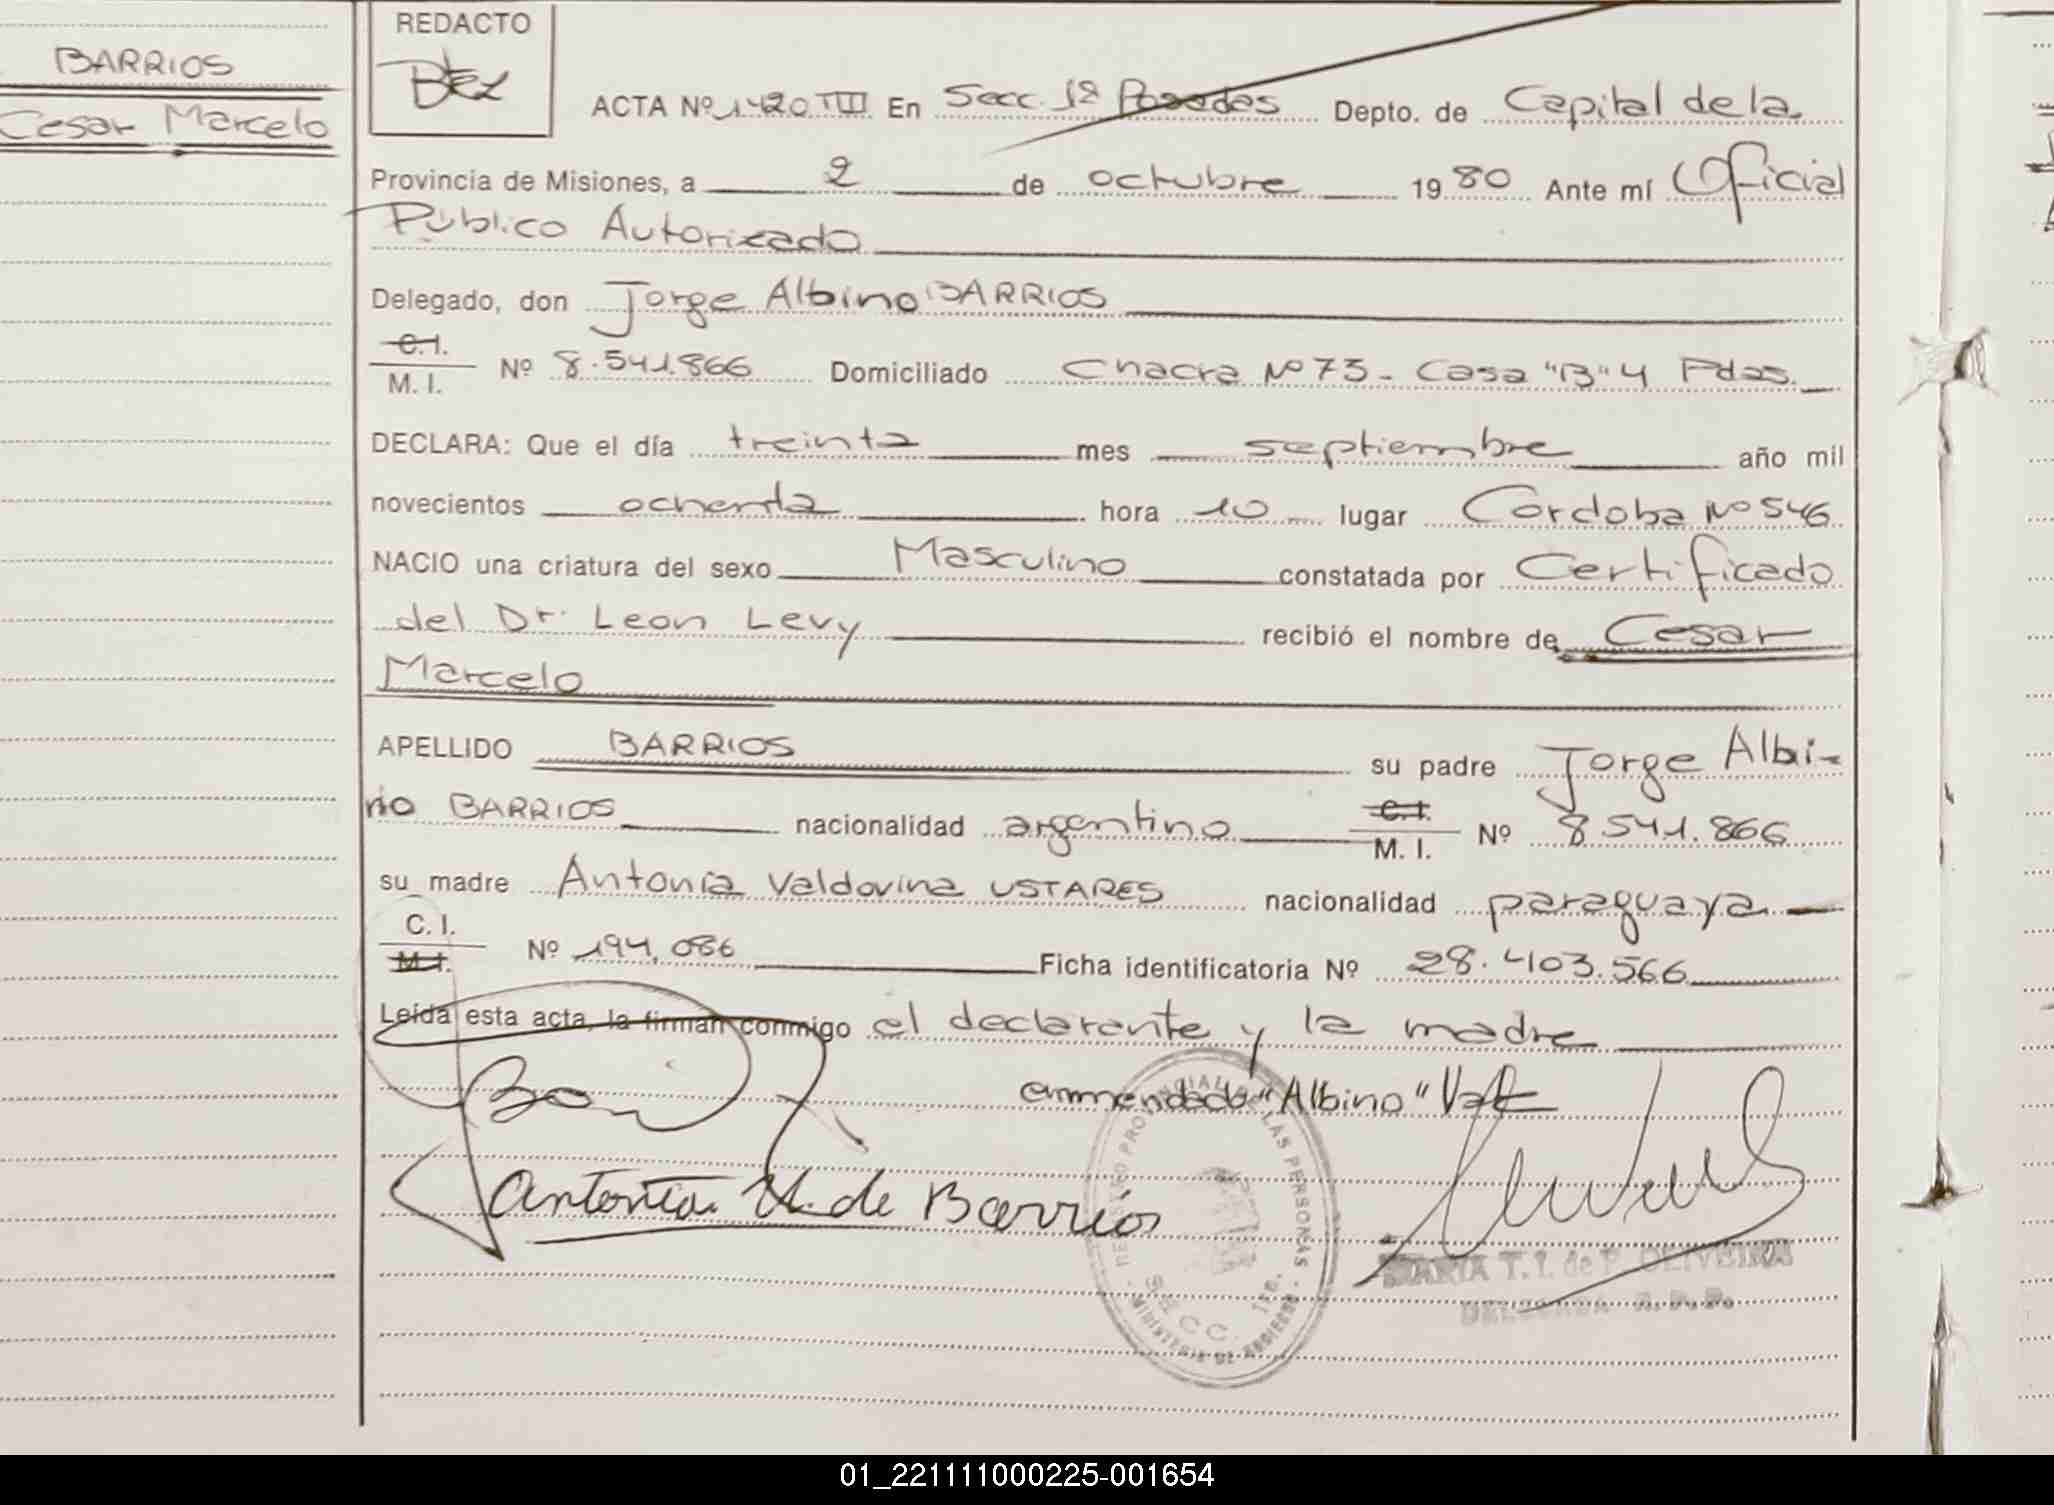 BARRIOS
Cesar Marcelo
REDACTO
ACTA Nº 1420 TIII En Secc. 1ª Posadas Depto. de Capital de la
Provincia de Misiones, a 2 de octubre 1980 Ante mí Oficial
Público Autorizado
Delegado, don Jorge Albino BARRIOS
C. I.
M. I. Nº 8.541.866 Domiciliado Chacra Nº 73 - Casa "B" 4 Pdas.
DECLARA: Que el día treinta mes septiembre año mil
novecientos ochenta hora 10 lugar Cordoba Nº 546
NACIO una criatura del sexo Masculino constatada por Certificado
del Dr. Leon Levy recibió el nombre de Cesar
Marcelo
APELLIDO BARRIOS su padre Jorge Albi-
no BARRIOS nacionalidad argentino C. I. M. I. Nº 8.541.866
su madre Antonia Valdovina USTARES nacionalidad paraguaya
C. I.
M. I. Nº 194.086 Ficha identificatoria Nº 28.403.566
Leída esta acta, la firman conmigo el declarante y la madre
enmendado "Albino" Vale
Antonia U. de Barrios
REGISTRO PROVINCIAL DE LAS PERSONAS
SECC. 1ra.
MINISTERIO DE GOBIERNO
MARIA T. I. de P. OLIVEIRA
DELEGADA R. P. P.
01_221111000225-001654